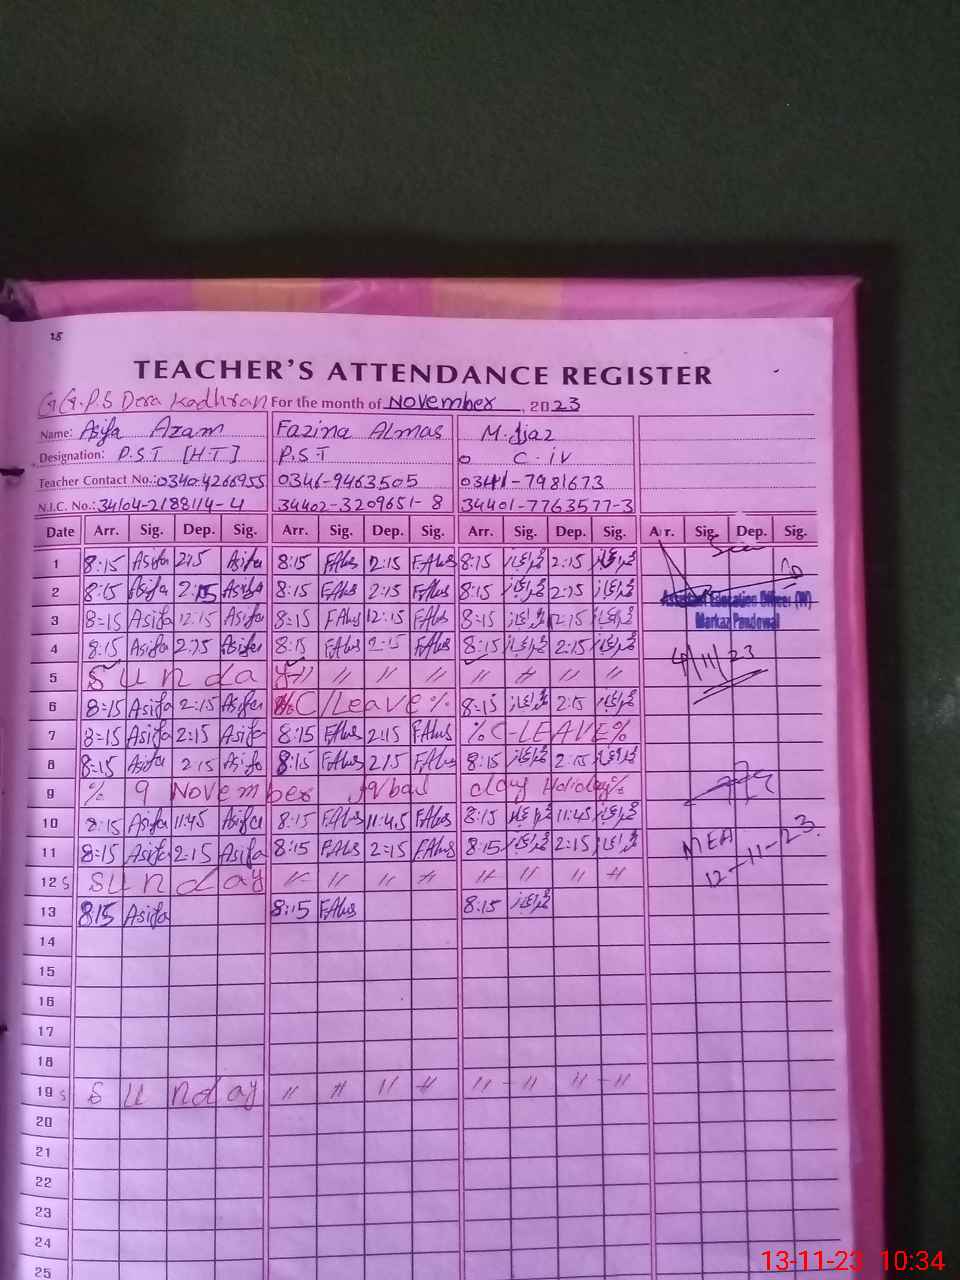 18
TEACHER'S ATTENDANCE REGISTER
G.G.P.S Dera Kadhran For the month of November, 2023
Name: Asifa Azam Fazina Almas M. Ijaz
Designation: P.S.T [H T] P.S.T C.iv
Teacher Contact No.: 0340-4266955 0346-9463505 0341-7981673
N.I.C. No.: 34104-2188114-4 34402-3209651-8 34401-7763577-3
Date Arr. Sig. Dep. Sig. Arr. Sig. Dep. Sig. Arr. Sig. Dep. Sig. Arr. Sig. Dep. Sig.
1 8:15 Asifa 2:15 Asifa 8:15 F.Alms 2:15 F.Alms 8:15 2:15
2 8:15 Asifa 2:15 Asifa 8:15 F.Alms 2:15 F.Alms 8:15 2:15
Assistant Education Officer (W)
3 8=15 Asifa 12:15 Asifa 8=15 F.Alms 12:15 F.Alms 8=15 12:15
Markaz Pandowal
4 8:15 Asifa 2:15 Asifa 8:15 F.Alms 2:15 F.Alms 8:15 2:15
4/11/23
5 Sunday // // // // // // //
6 8=15 Asifa 2:15 Asifa % C/Leave % 8=15 2:15
7 8=15 Asifa 2:15 Asifa 8:15 F.Alms 2:15 F.Alms % C-LEAVE %
8 8=15 Asifa 2:15 Asifa 8:15 F.Alms 2:15 F.Alms 8:15 2:15
9 % 9 November Iqbal day Holiday %
10 8:15 Asifa 11:45 Asifa 8:15 F.Alms 11:45 F.Alms 8:15 11:45
11 8:15 Asifa 2:15 Asifa 8:15 F.Alms 2:15 F.Alms 8:15 2:15
MEA
12-11-23.
12 S Sunday // // // // // // // //
13 8:15 Asifa 8:15 F.Alms 8:15
14
15
16
17
18
19 S Sunday // // // // // - // // - //
20
21
22
23
24
25
13-11-23 10:34